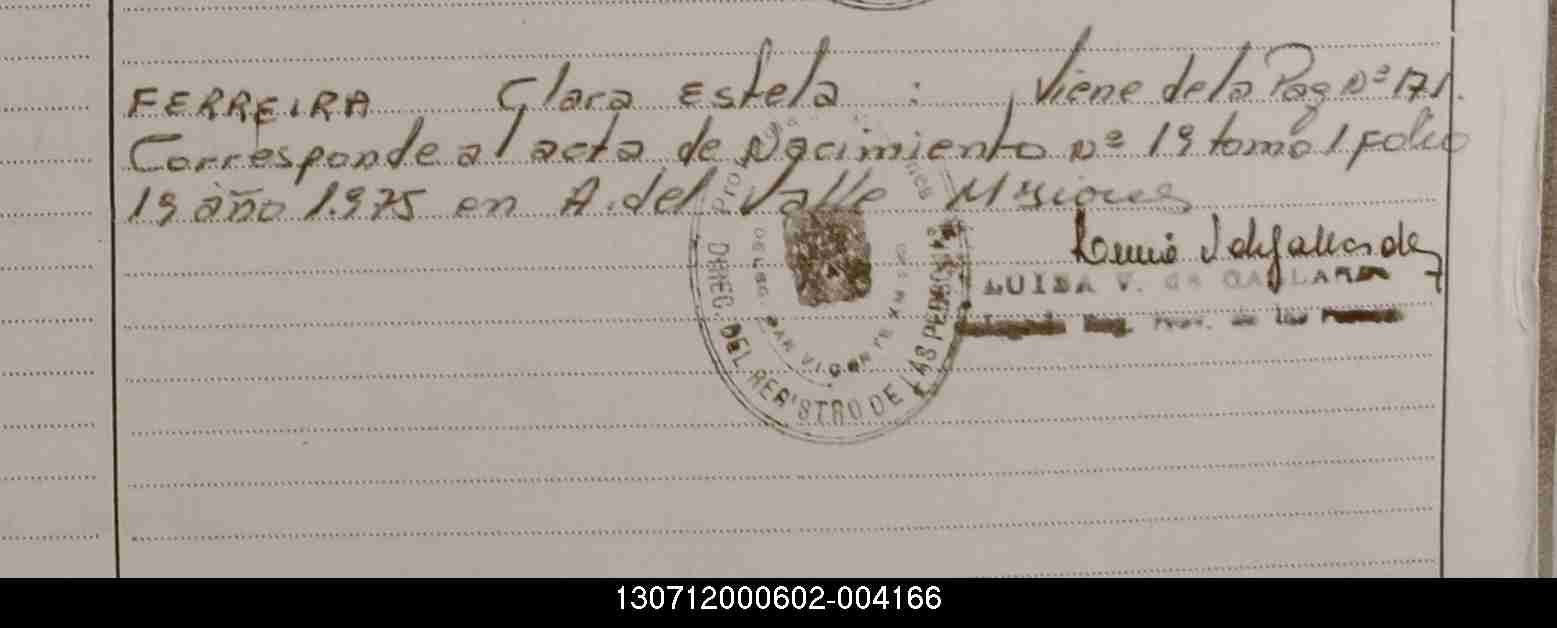 FERREIRA Clara Estela : Viene de la Pag Nº 171.
Corresponde al acta de Nacimiento Nº 19 tomo 1 folio
19 año 1.975 en A. del Valle Misiones
LUISA V. de GALLARDO
DIREC. DEL REGISTRO DE LAS PERSONAS
SAN VICENTE
130712000602-004166